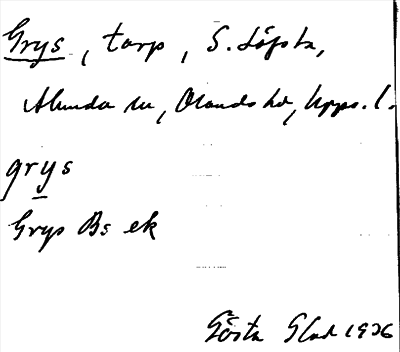 Grys, torp, S. Löfsta,
Alunda sn, Olands hd, Upps. l.
grys
Grys Bs ek
Gösta Glad 1926